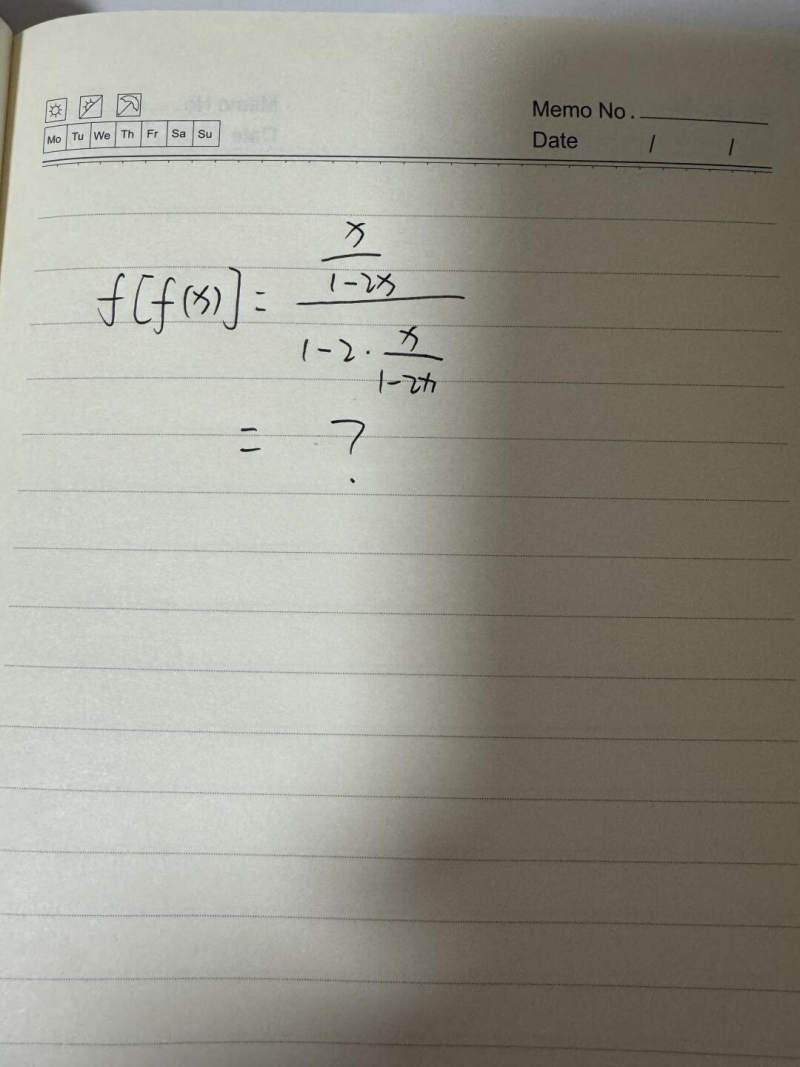 Memo No.
Mo Tu We Th Fr Sa Su
Date / /
f[f(x)] = \frac{\frac{x}{1-2x}}{1-2·\frac{x}{1-2x}}
= ?